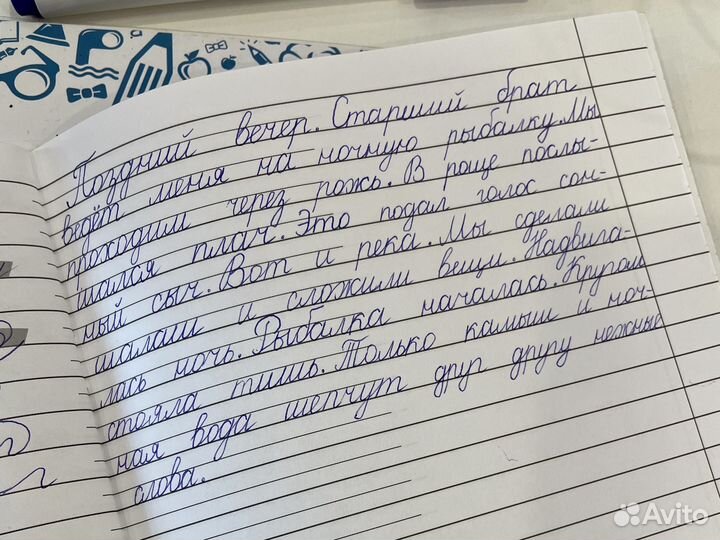 Поздний вечер. Старший брат
ведёт меня на ночную рыбалку. Мы
проходим через рожь. В роще послы-
шался плач. Это подал голос сон-
ный сыч. Вот и река. Мы сделали
шалаш и сложили вещи. Надвига-
лась ночь. Рыбалка началась. Кругом
стояла тишь. Только камыш и ноч-
ная вода шепчут друг другу нежные
слова.
Avito